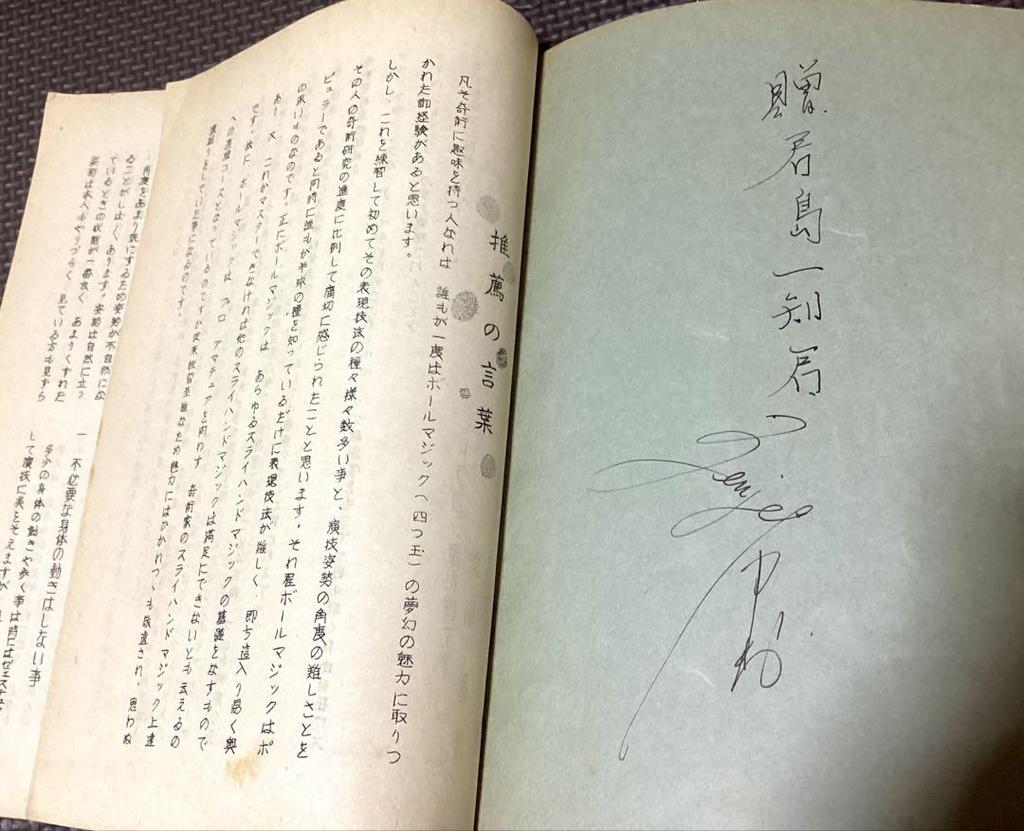 贈 君島一知君
推薦の言葉
凡そ奇術に趣味を持つ人なれば 誰もが一度はボールマジック(四つ玉)の夢幻の魅力に取りつ
かれた御経験があると思います。
しかし、これを練習して初めてその表現技法の種々様々数多い事と、演技姿勢の角度の難しさとを
その人の奇術研究の進度に比例して痛切に感じられたことと思います。それ程ボールマジックはポ
ピュラーであると同時に誰もが半球の種を知っているだけに表現技法が難しく、即ち這入り易く奥
の深いものなのです。正にボールマジックは あらゆるスライハンドマジックの基礎をなすもので
あり 又 これがマスターできなければ他のスライハンドマジックは満足にできないとも云えるの
です。故に ボールマジックは プロ アマチュアを問わず 奇術家のスライハンドマジック上達
への直結コースとなっているのですが従来練習至難なため魅力にはかられつゝも敬遠され、思わぬ
しているのです。
角度をあまり気にするため姿勢が不自然にな
ることがしばしばあります。姿勢は自然に立っ
ているときの状態が一番良く あまりくずれた
姿勢は本人もやりづらく 見ている方も見ずら
一 不必要な身体の動きはしない事
多少の身体の動きや歩く事は時にはゼスチ
して演技に美をそえますが